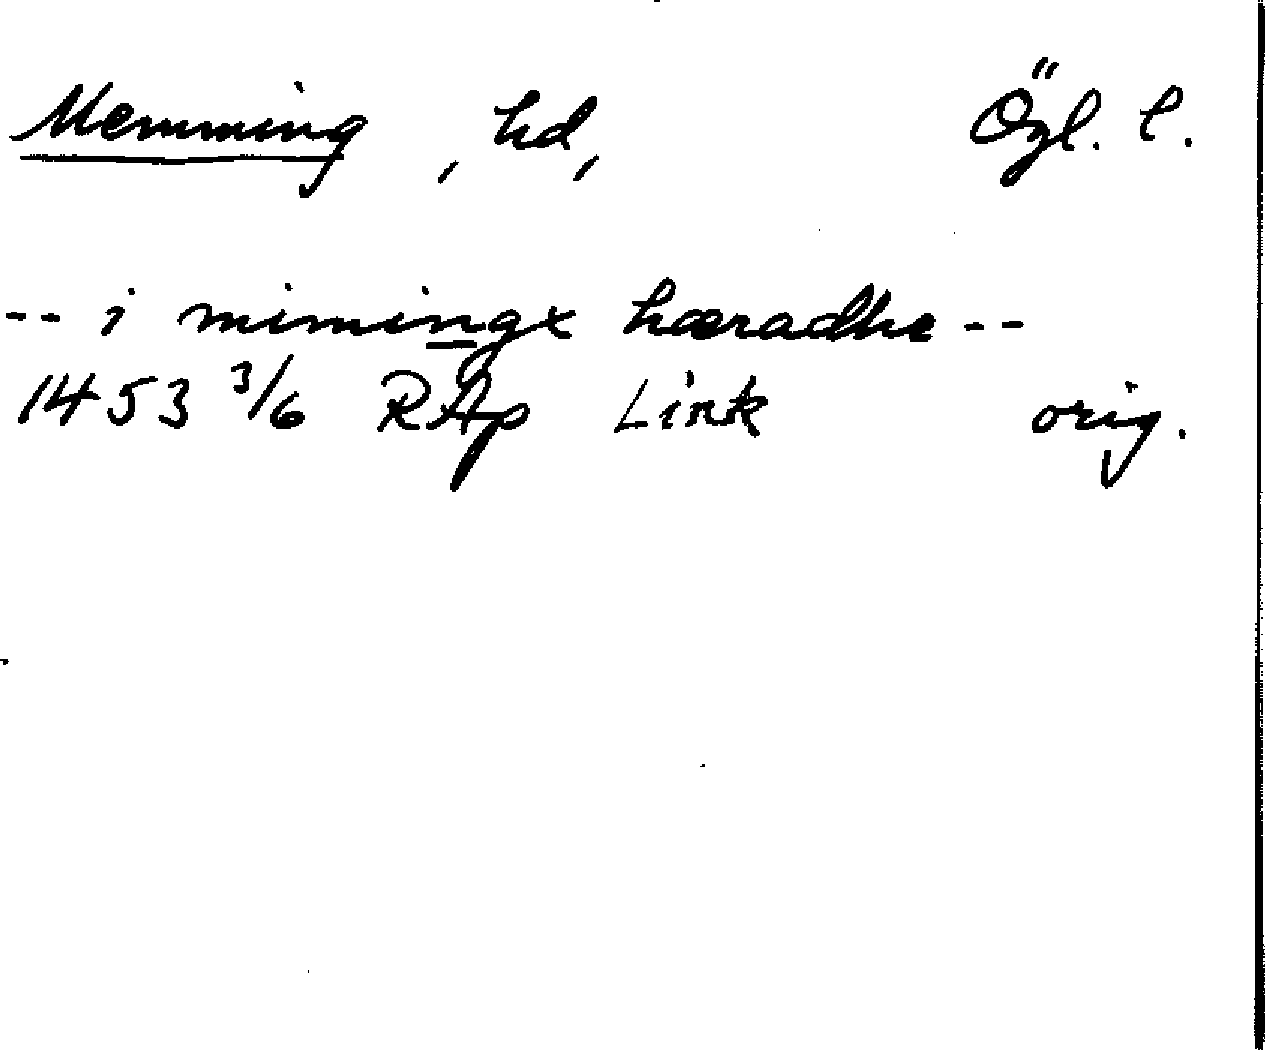 Memming, hd, Ögl. l.
-- i mimingx hæradhe --
1453 3/6 RAp Link orig.